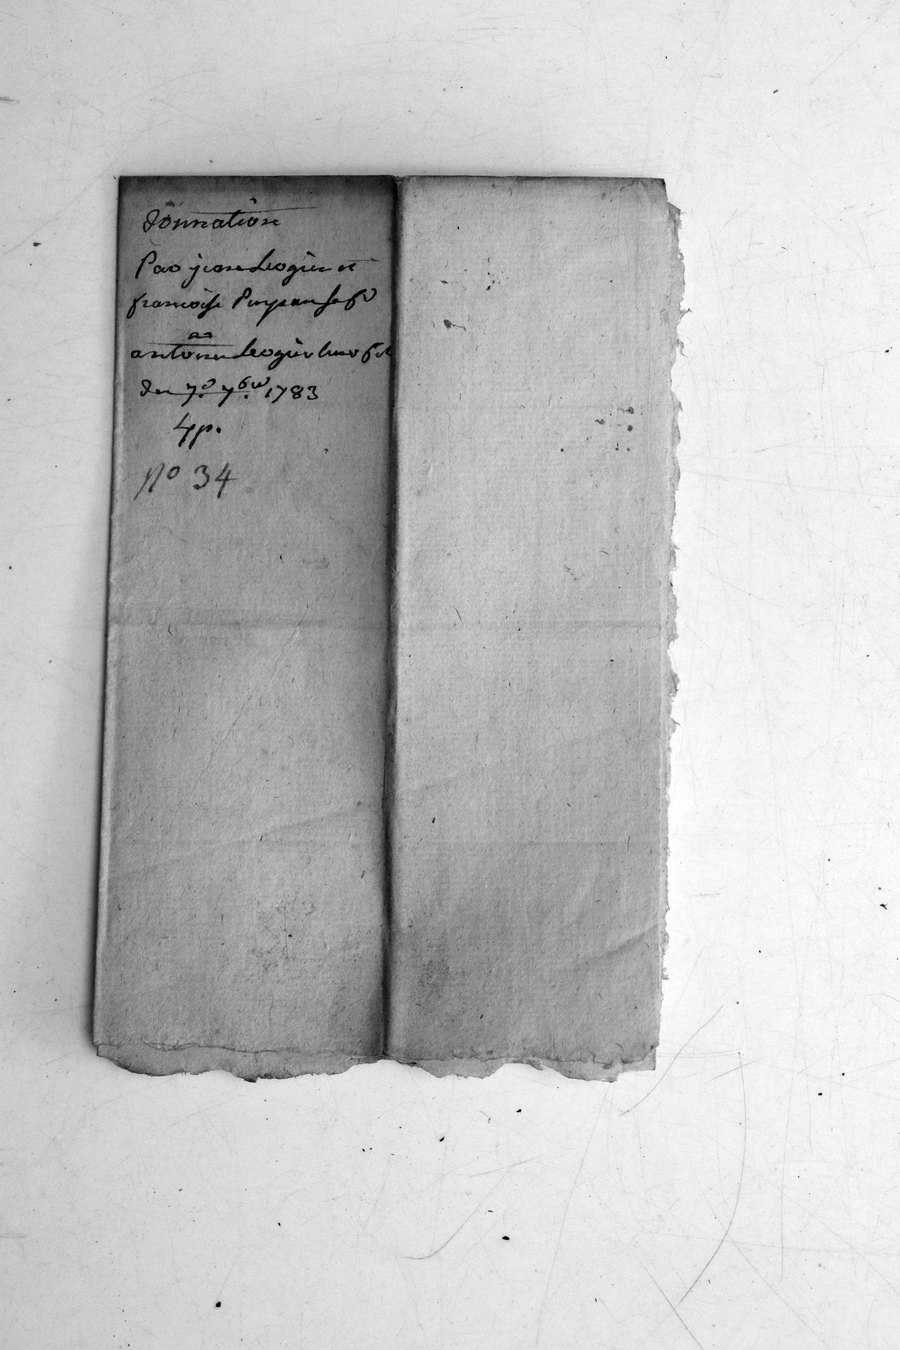 donnation
Par jean Leogier et
francoise Puy sa fe
a
antoine Leogier leur fils
du 7e 7bre 1783
4p.
No 34